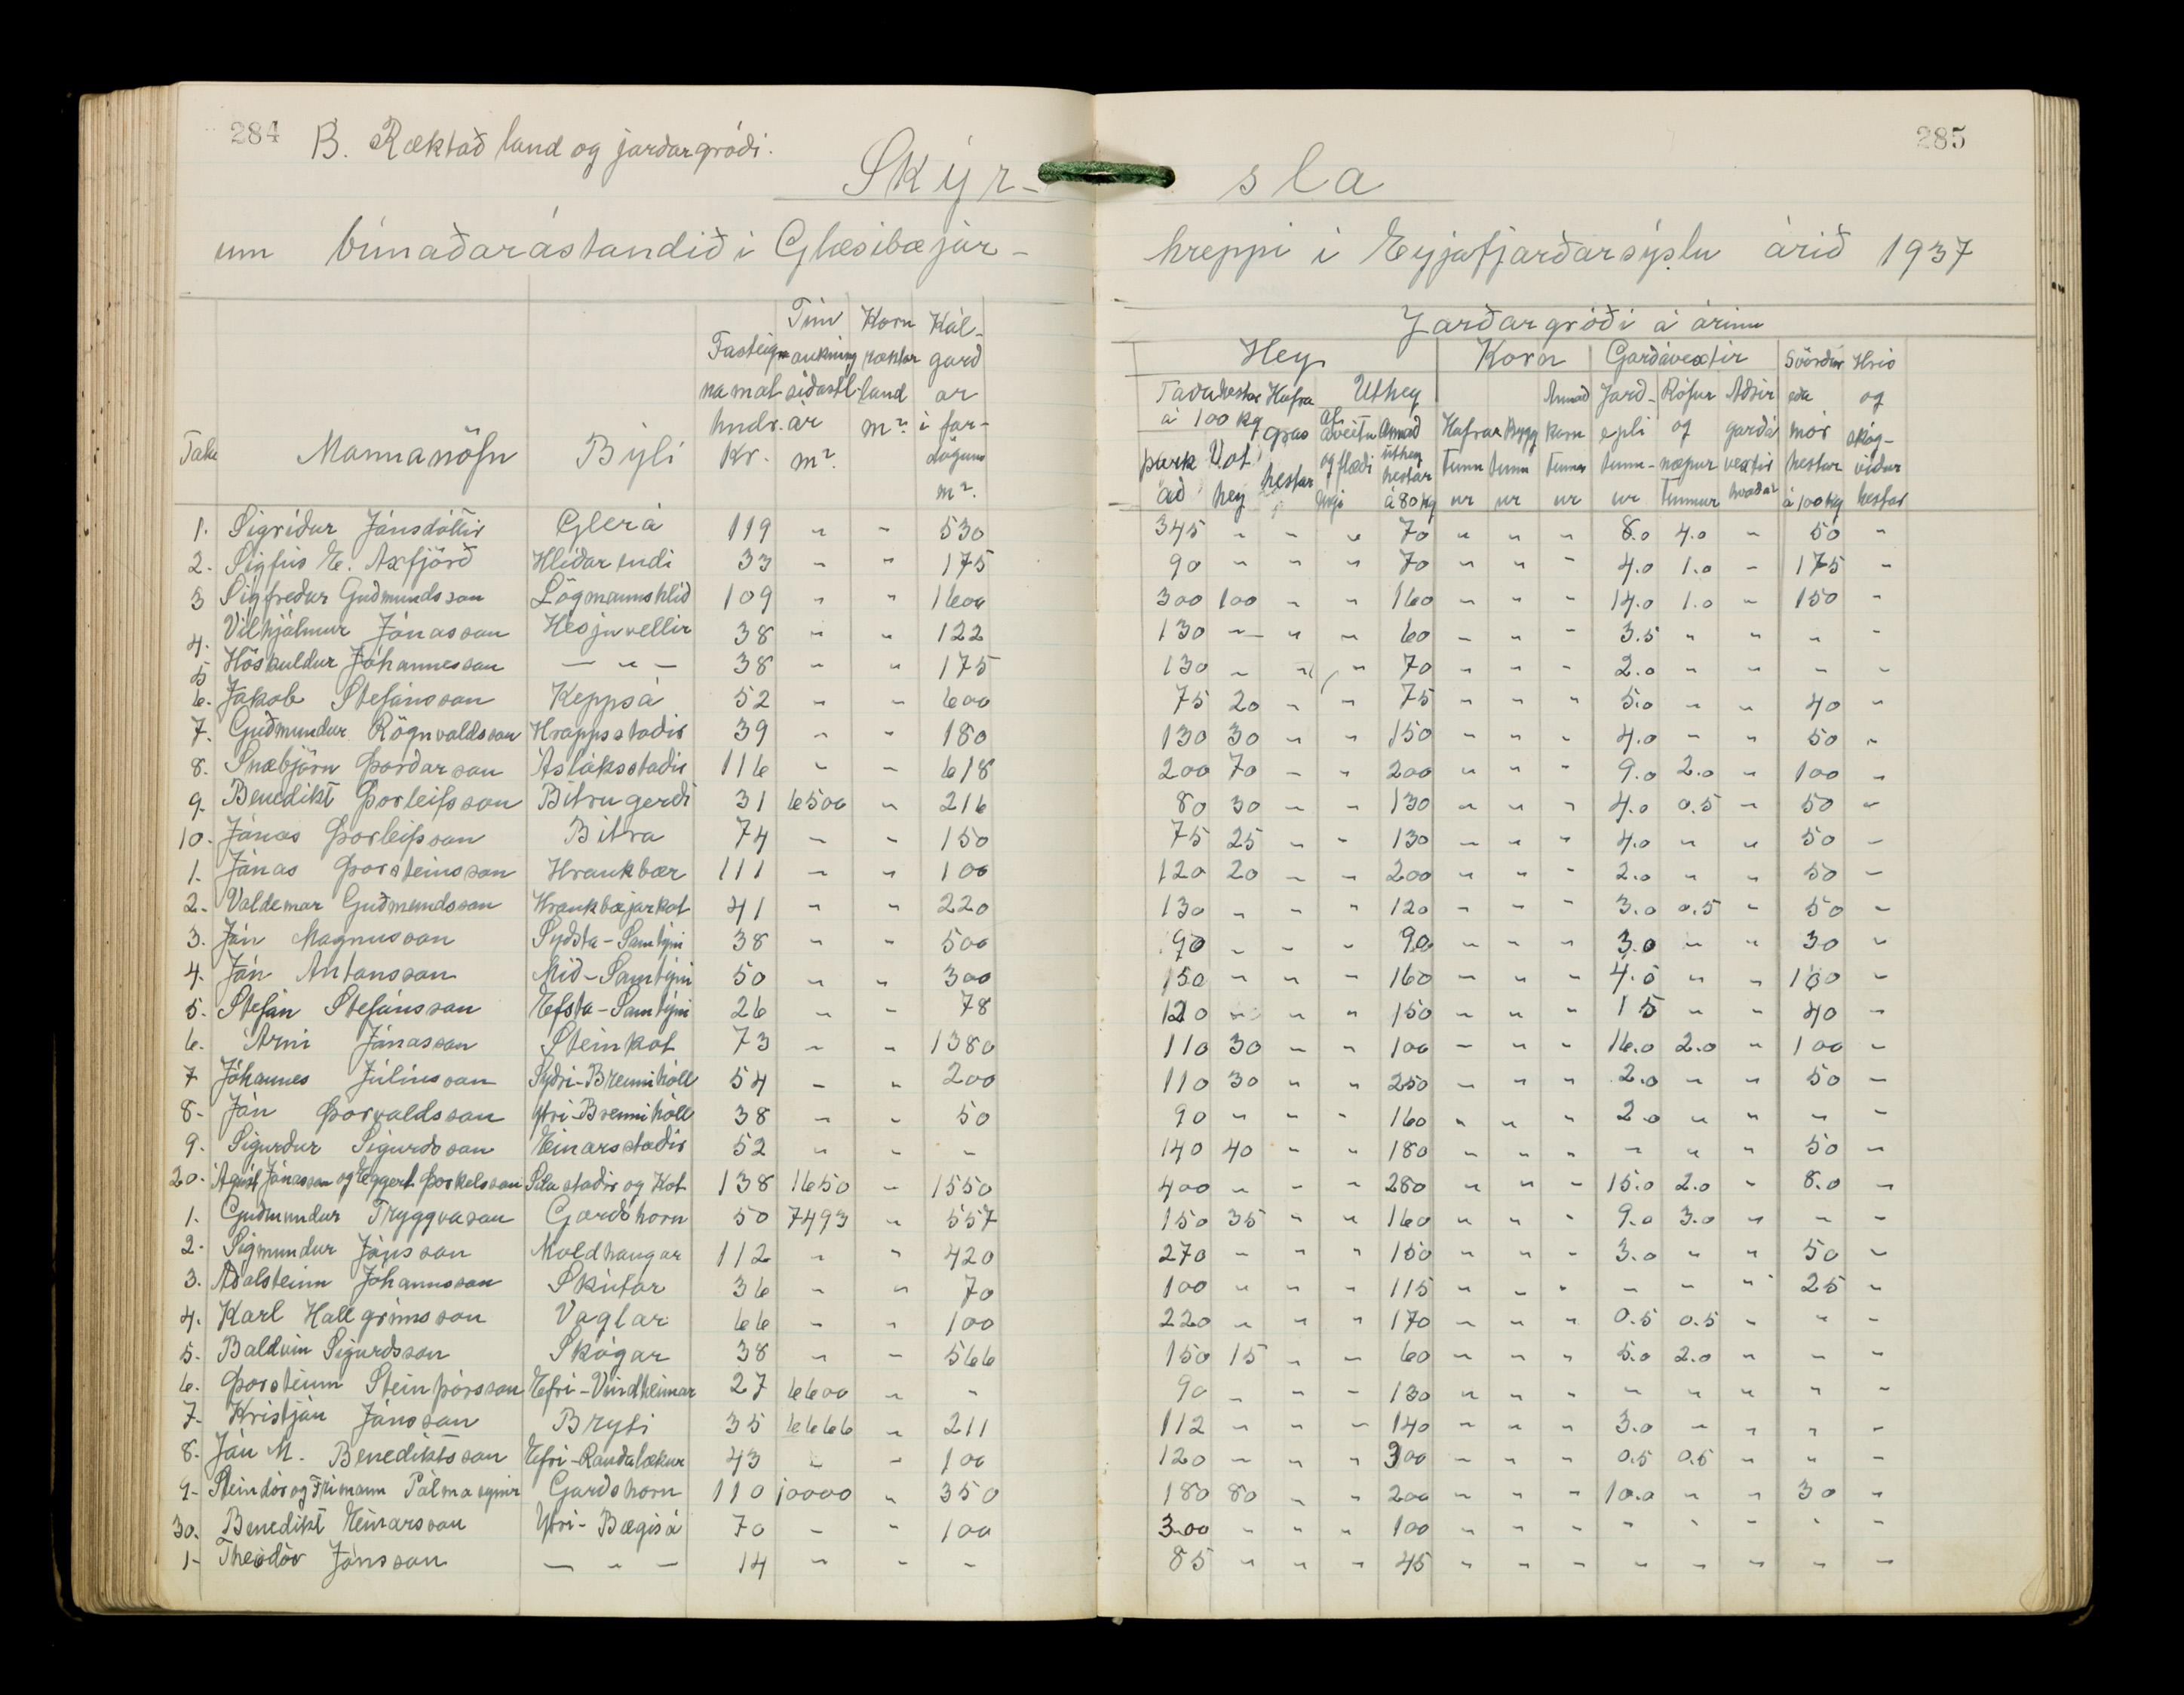 284
B. Ræktað land og jarðargróði.
285
Skýr-sla
um búnaðarástandið í Glæsibæjar-hreppi í Eyjafjarðarsýslu árið 1937
Tala Mannanöfn Býli Fasteignamat hndr. Kr. Tún aukning síðastl. ár m². Korn ræktar land m². Kálgarðar í fardögum m².
Jarðargróði á árinu
Hey Korn Garðávextir Svörður eða mór hestar á 100 kg Hrís og skógviður hestar
Taða hestar á 100 kg þurkað Vothey Hafragras hestar Úthey Af áveitu og flæði engi Annað úthey hestar á 80 kg Hafrar tunnur Bygg tunnur Annað korn tunnur Jarðepli tunnur Rófur og næpur tunnur Aðrir garðávextir
1. Sigríður Jónsdóttir Glerá 119 " " 530 345 " " " 70 " " " 8.0 4.0 " 50 "
2. Sigfús E. Axfjörð Hlíðarendi 33 " " 175 90 " " " 70 " " " 4.0 1.0 " 175 "
3 Sigfreður Guðmundsson Lögmannshlíð 109 " " 1600 300 100 " " 160 " " " 14.0 1.0 " 150 "
4. Vilhjálmur Jónasson Hesjuvellir 38 " " 122 130 " " " 60 " " " 3.5 " " " "
5 Höskuldur Jóhannesson — " — 38 " " 175 130 " " " 70 " " " 2.0 " " " "
6. Jakob Stefánsson Keppsá 52 " " 600 75 20 " " 75 " " " 5.0 " " 40 "
7. Guðmundur Rögnvaldsson Hrappsstaðir 39 " " 180 130 30 " " 150 " " " 4.0 " " 50 "
8. Snæbjörn Þórðarson Ásláksstaðir 116 " " 618 200 70 " " 200 " " " 9.0 2.0 " 100 "
9. Benedikt Þorleifsson Bitrugerði 31 6500 " 216 80 30 " " 130 " " " 4.0 0.5 " 50 "
10. Jónas Þorleifsson Bitra 74 " " 150 75 25 " " 130 " " " 4.0 " " 50 "
1. Jónas Þorsteinsson Hraukbær 111 " " 100 120 20 " " 200 " " " 2.0 " " 50 "
2. Valdemar Guðmundsson Hraukbæjarkot 41 " " 220 130 " " " 120 " " " 3.0 0.5 " 50 "
3. Jón Magnússon Syðsta-Samtýni 38 " " 500 90 " " " 90 " " " 3.0 " " 30 "
4. Jón Antonsson Mið-Samtýni 50 " " 300 150 " " " 160 " " " 4.0 " " 100 "
5. Stefán Stefánsson Efsta-Samtýni 26 " " 78 120 " " " 150 " " " 15 " " 40 "
6. Árni Jónasson Steinkot 73 " " 1380 110 30 " " 100 " " " 16.0 2.0 " 100 "
7 Jóhannes Júlíusson Syðri-Brennihóll 54 " " 200 110 30 " " 250 " " " 2.0 " " 50 "
8. Jón Þorvaldsson Ytri-Brennihóll 38 " " 50 90 " " " 160 " " " 2.0 " " " "
9. Sigurður Sigurðsson Einarsstaðir 52 " " " 140 40 " " 180 " " " " " " 50 "
20. Ágúst Jónasson og Eggert Þorkelsson Sílastaðir og Kot 138 1650 " 1550 400 " " " 280 " " " 15.0 2.0 " 8.0 "
1. Guðmundur Tryggvason Garðshorn 50 7493 " 557 150 35 " " 160 " " " 9.0 3.0 " " "
2. Sigmundur Jónsson Moldhaugar 112 " " 420 270 " " " 150 " " " 3.0 " " 50 "
3. Aðalsteinn Jóhannsson Skútar 36 " " 70 100 " " " 115 " " " " " " 25 "
4. Karl Hallgrímsson Vaglar 66 " " 100 220 " " " 170 " " " 0.5 0.5 " " "
5. Baldvin Sigurðsson Skógar 38 " " 566 150 15 " " 60 " " " 5.0 2.0 " " "
6. Þorsteinn Steinþórsson Efri-Vindheimar 27 6600 " " 90 " " " 130 " " " " " " " "
7. Kristján Jónsson Bryti 35 6666 " 211 112 " " " 140 " " " 3.0 " " " "
8. Jón M. Benediktsson Efri-Rauðalækur 43 " " 100 120 " " " 300 " " " 0.5 0.5 " " "
9- Steindór og Frímann Pálmasynir Garðshorn 110 10000 " 350 180 80 " " 200 " " " 10.0 " " 30 "
30. Benedikt Einarsson Ytri-Bægisá 70 " " 100 300 " " " 100 " " " " " " " "
1- Theódór Jónsson — " — 14 " " " 85 " " " 45 " " " " " " " "